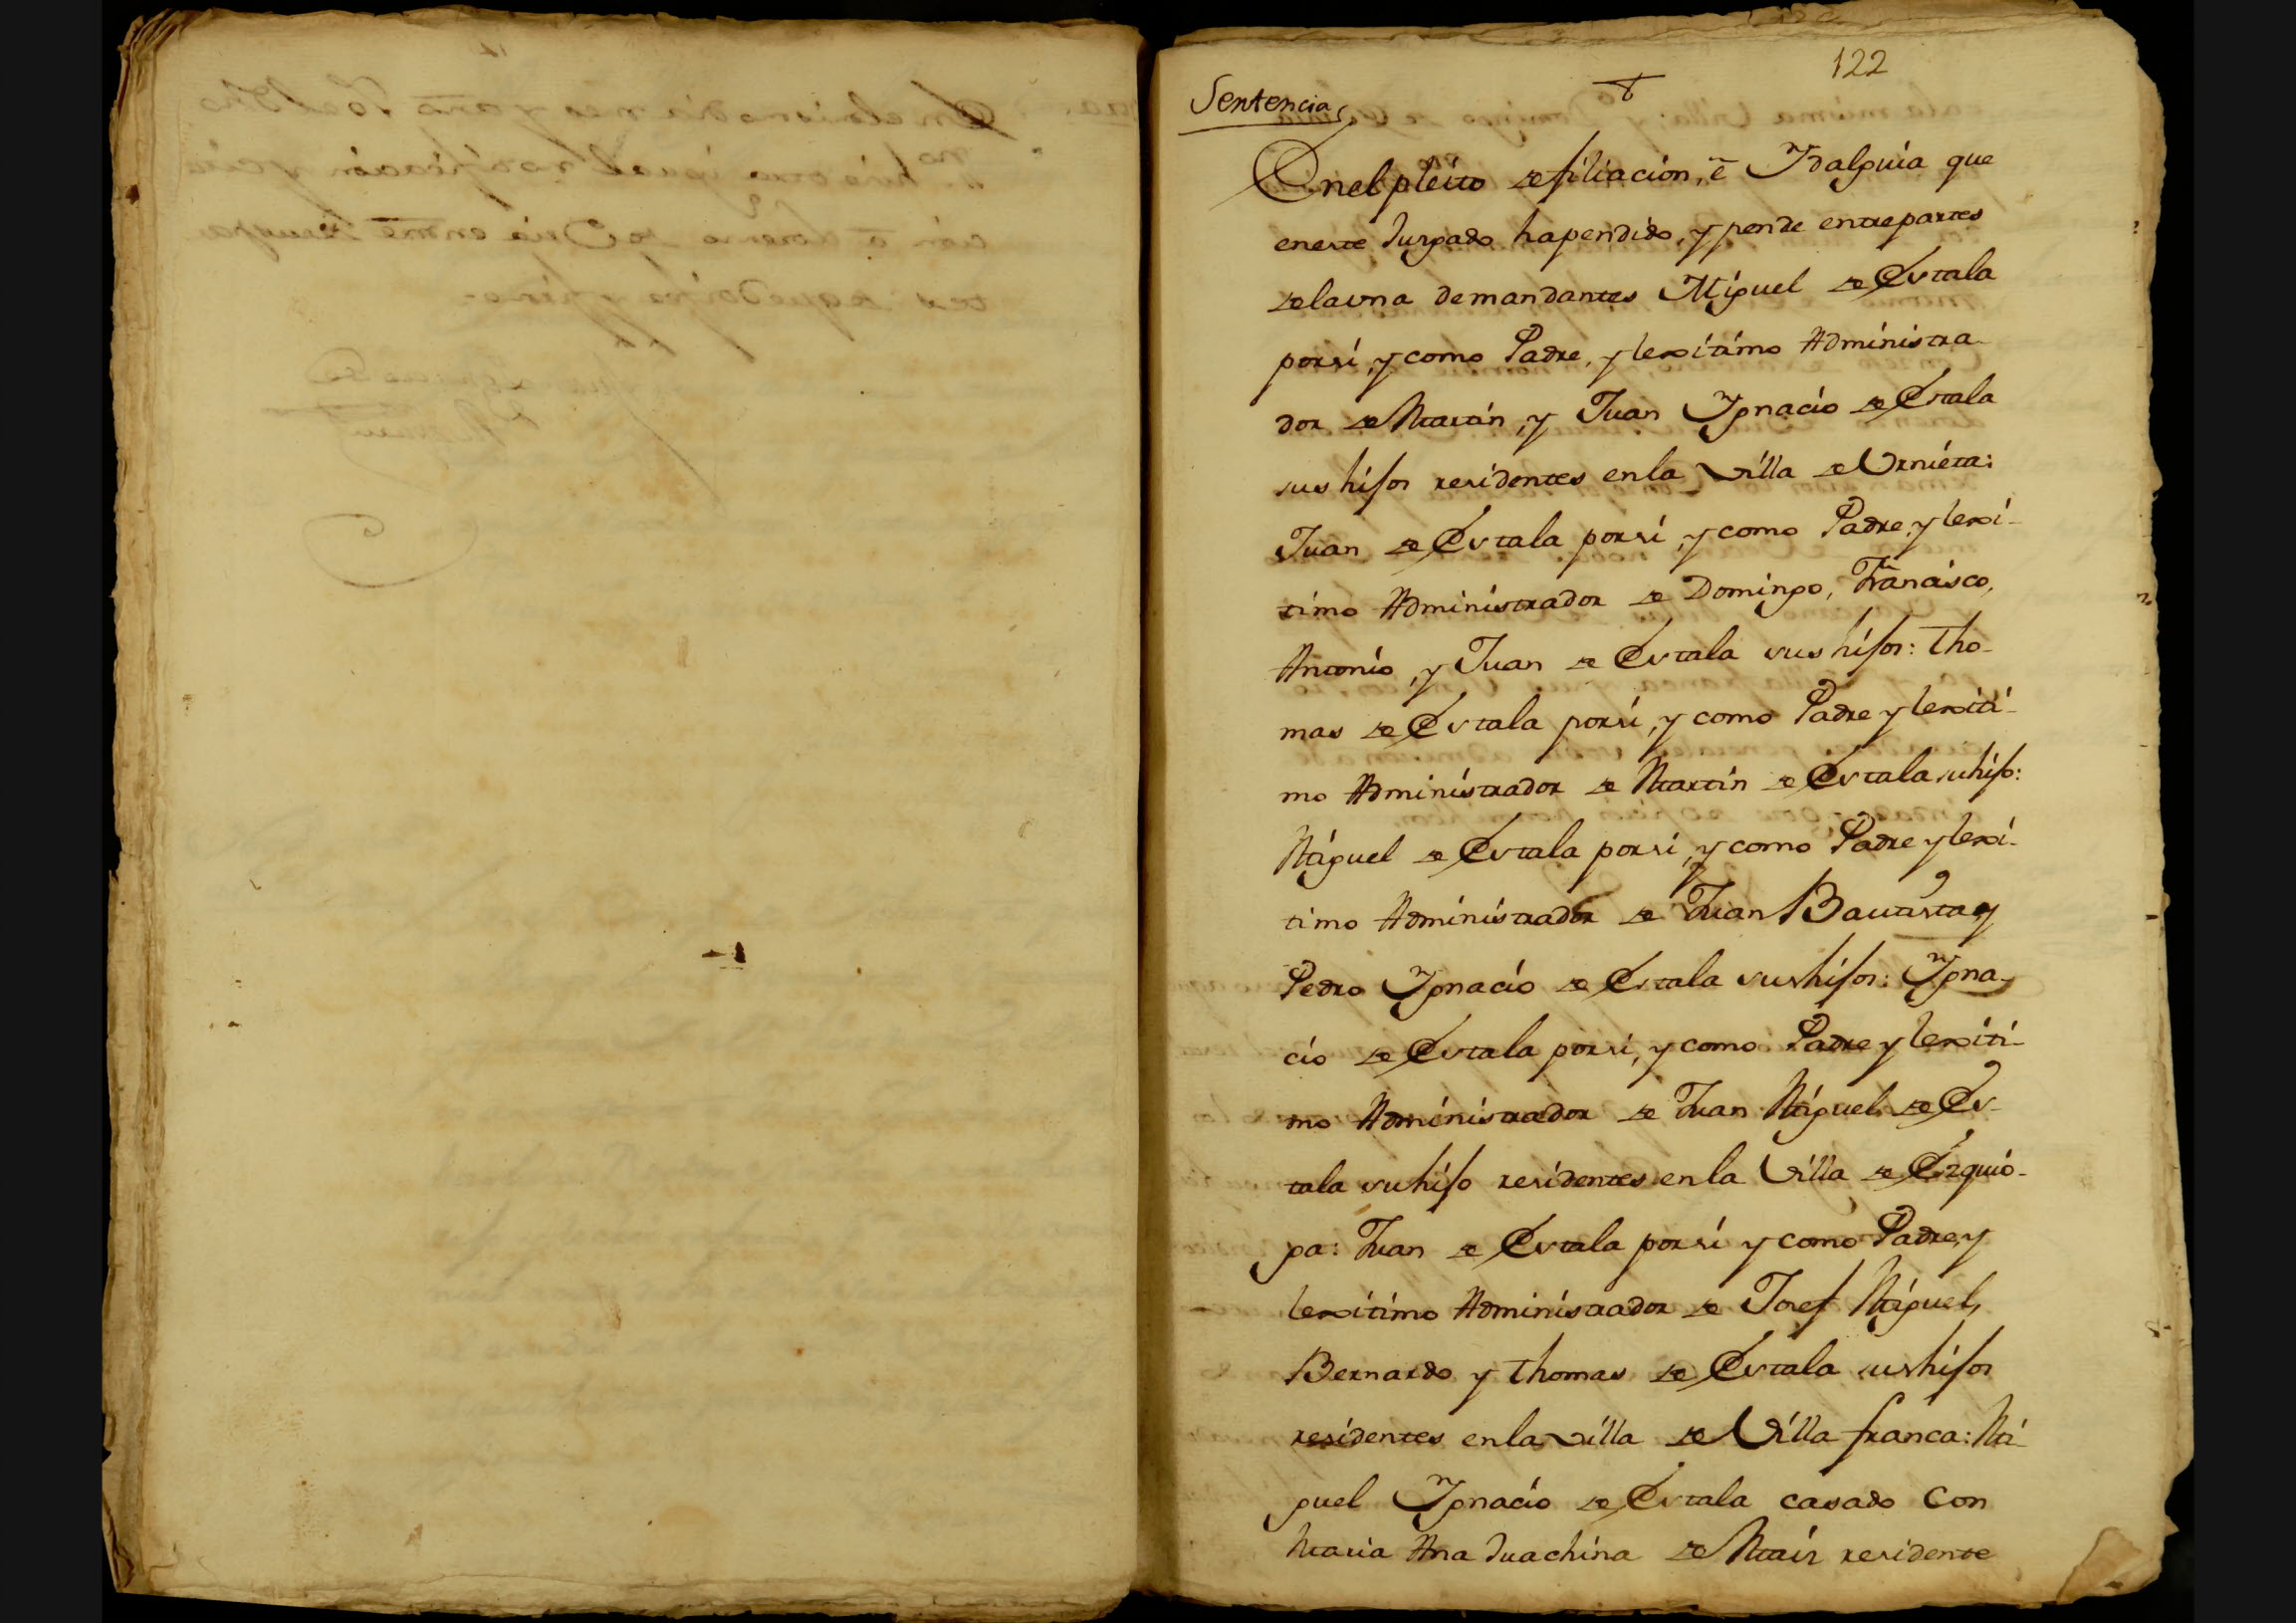 122
Sentencia
En el pleito de filiacion, è Ydalguia que
eneste Jurgado hapendido, y pende entrepartes
delavna demandantes Miguel de Estala
porsi, y como Padre, y lexitimo Administra-
dor de Martin, y Juan Ygnacio de Estala
sus hijos residentes enla Villa de Urnieta:
Juan de Estala porsi, y como Padre, y lexi-
timo Administrador de Domingo, Francisco,
Antonio, y Juan de Estala sus hijos: Tho-
mas de Estala porsi, y como Padre y lexiti-
mo Administrador de Martin de Estala suhijo:
Miguel de Estala porsi, y como Padre y lexi-
timo Administrador de Juan Bautista y
Pedro Ygnacio de Estala sushijos: Ygna-
cio de Estala porsi, y como Padre y lexiti-
mo Administrador de Juan Miguel de Es-
tala suhijo residentes enla Villa de Ezquio-
ga: Juan de Estala porsi y como Padre, y
lexitimo Administrador de Josef Miguel,
Bernardo y Thomas de Estala sushijos
residentes enla villa de Villa franca: Mi-
guel Ygnacio de Estala casado con
Maria Ana Juachina de Maiz residente